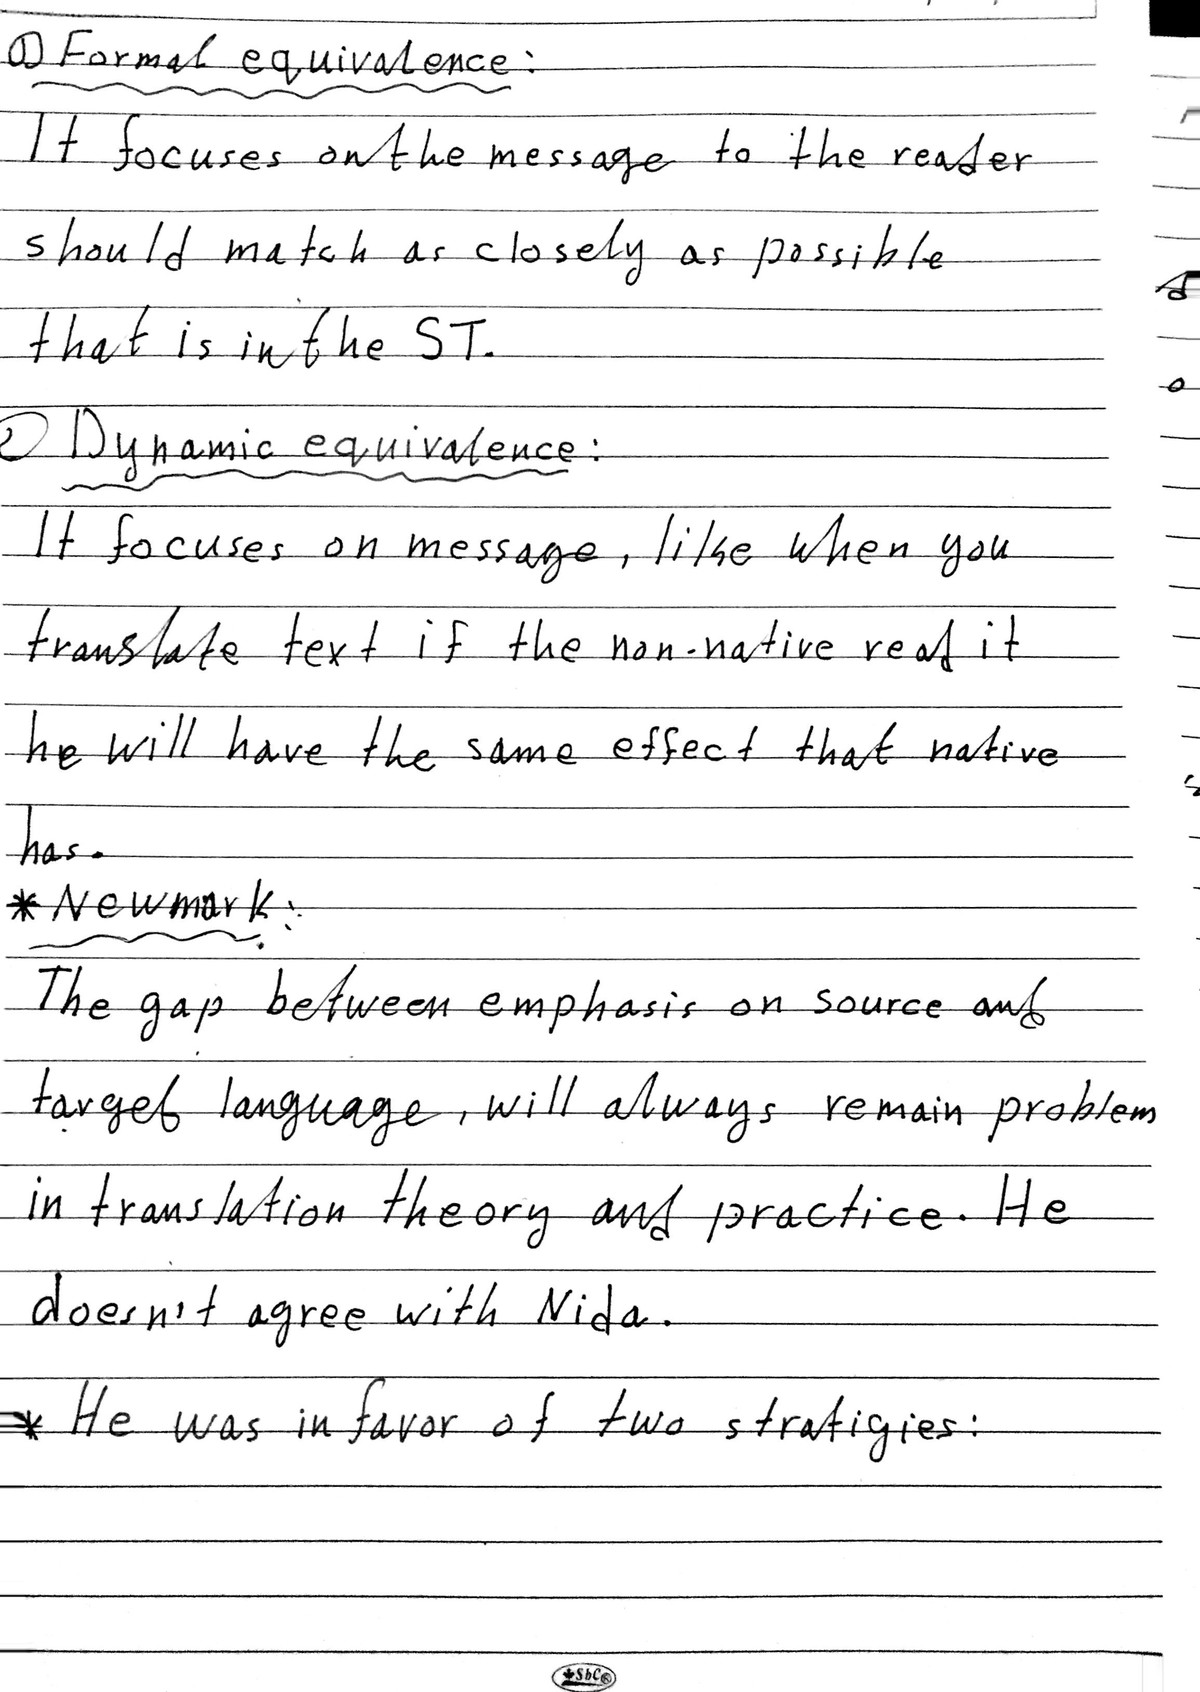 ① Formal equivalence:
It focuses on the message to the reader
should match as closely as possible
that is in the ST.
② Dynamic equivalence:
It focuses on message, like when you
translate text if the non-native read it
he will have the same effect that native
has.
* Newmark:
The gap between emphasis on source and
target language, will always remain problem
in translation theory and practice. He
doesn't agree with Nida.
* He was in favor of two stratigies:
SbC